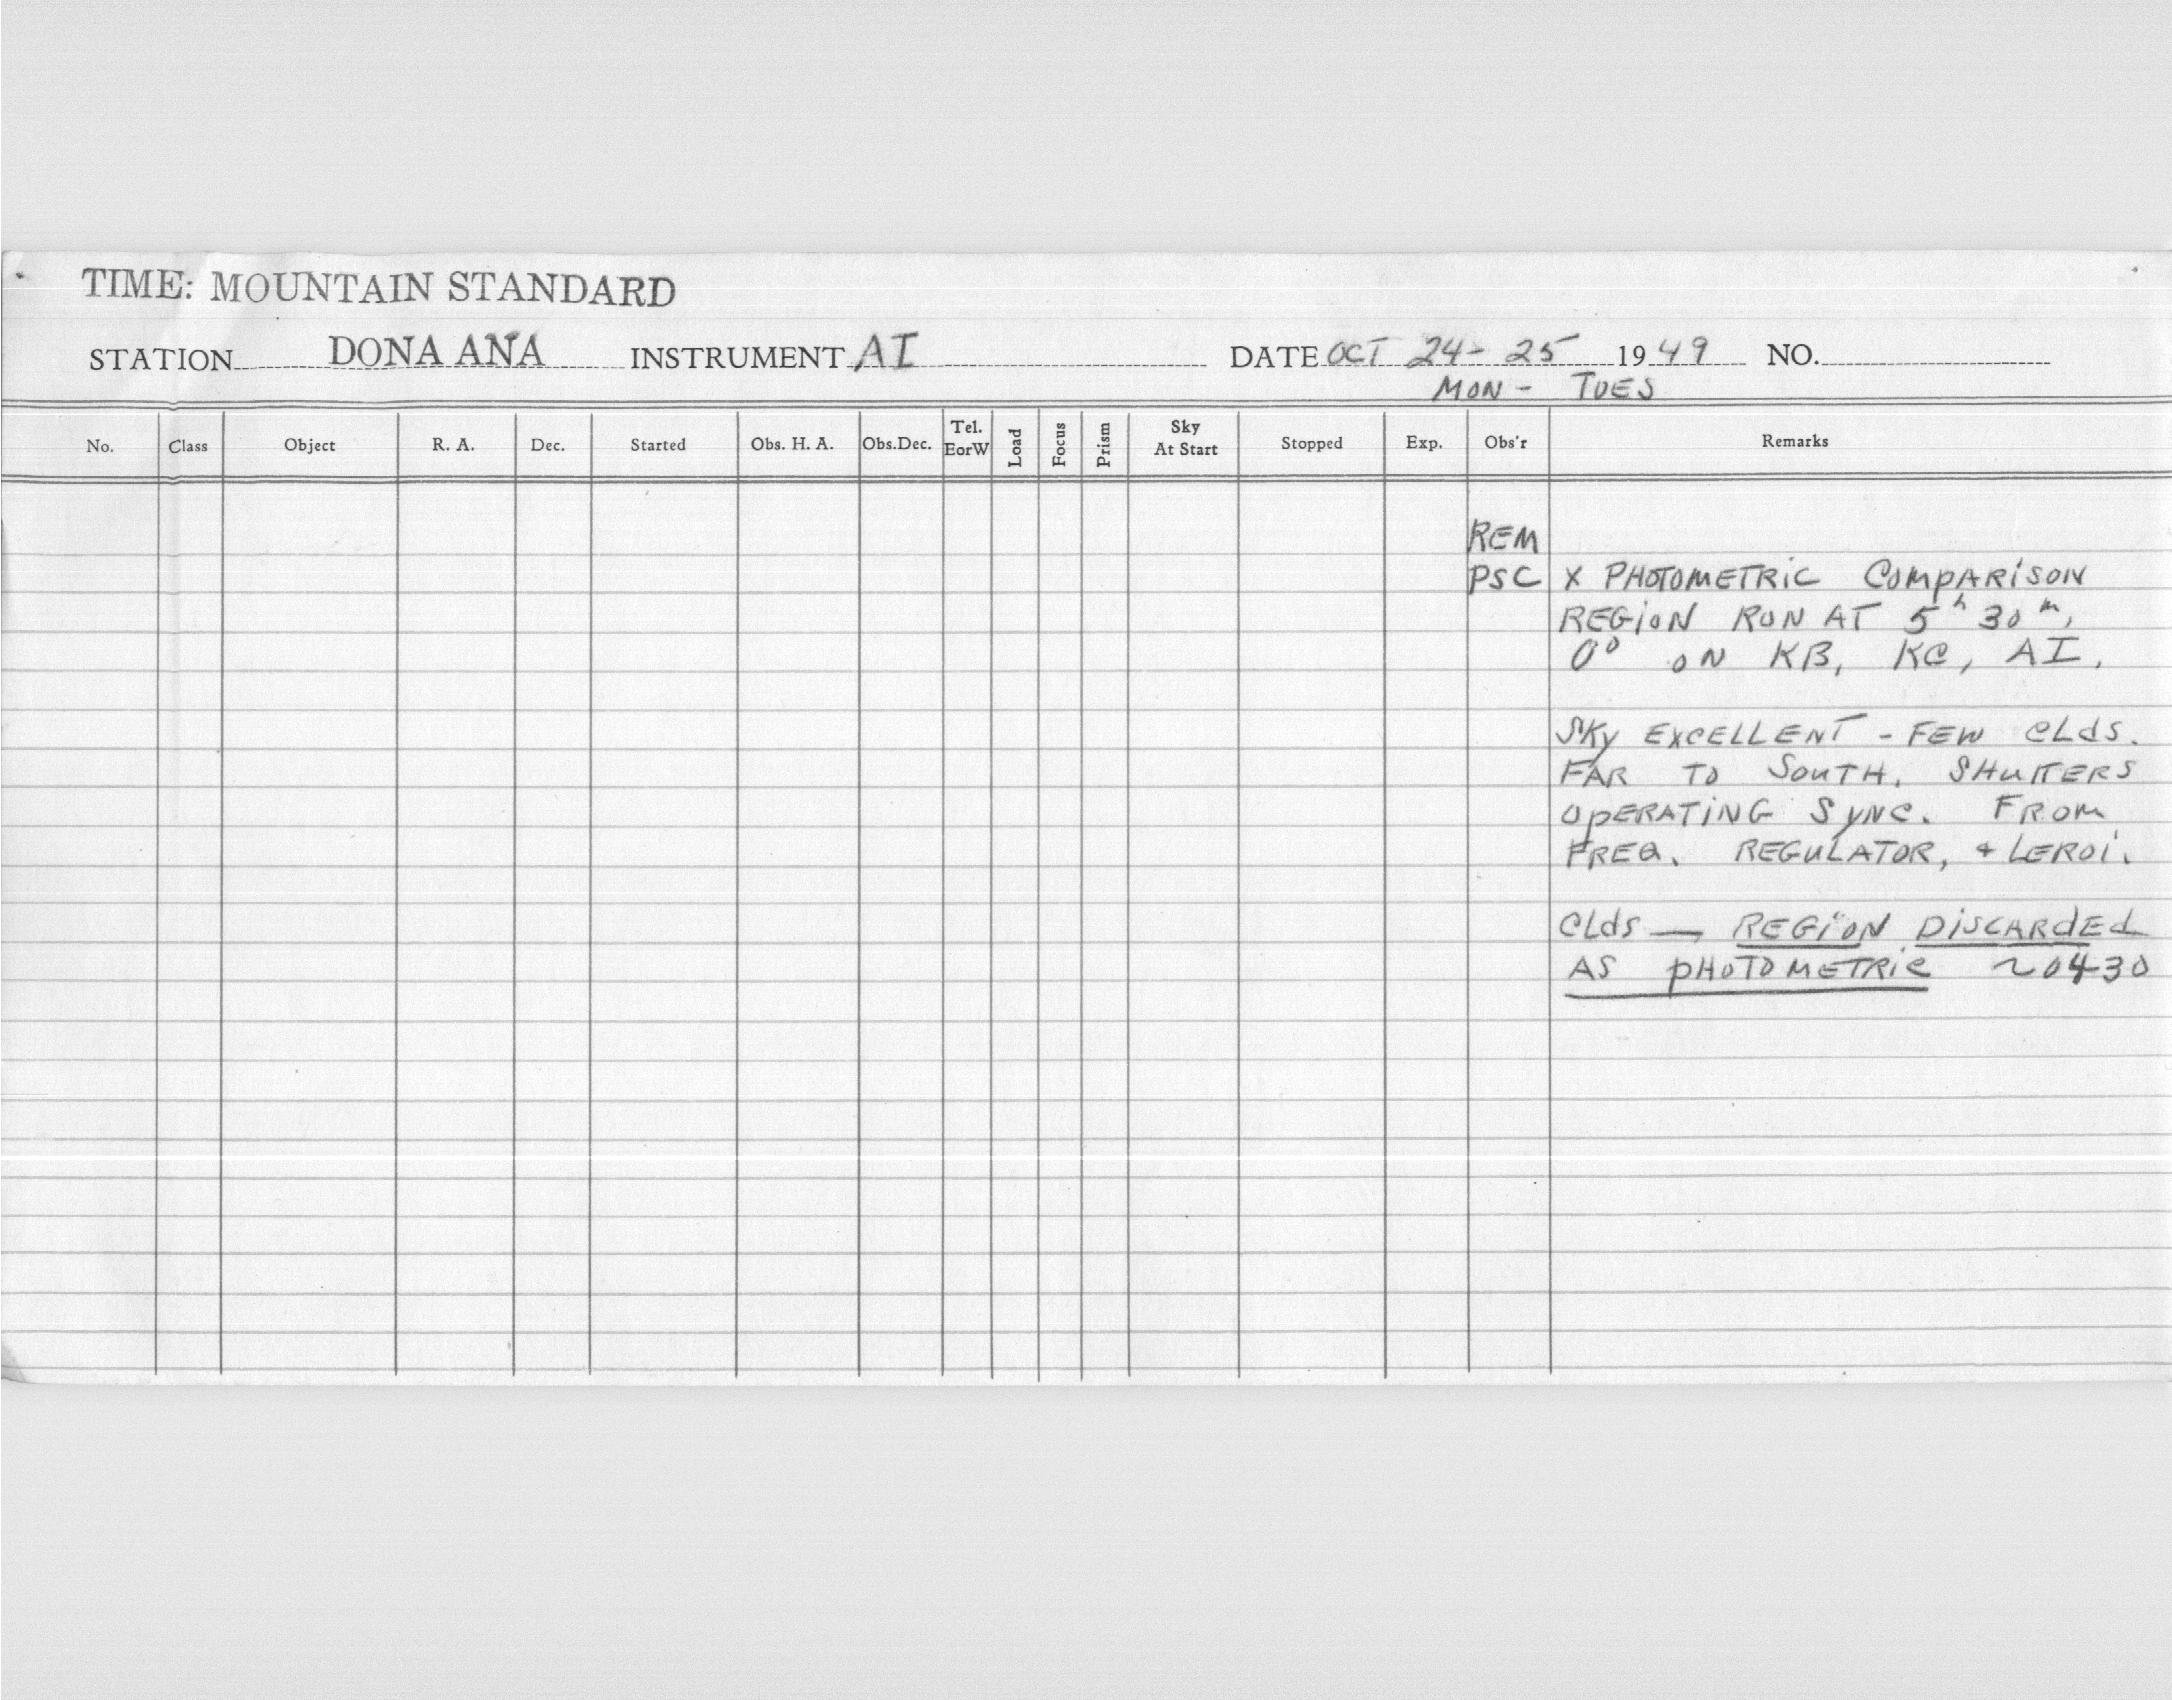 TIME: MOUNTAIN STANDARD
STATION DONA ANA INSTRUMENT AI DATE OCT 24-25 1949 NO.
MON - TUES
No. Class Object R. A. Dec. Started Obs. H. A. Obs.Dec. Tel. EorW Load Focus Prism Sky At Start Stopped Exp. Obs'r Remarks
REM
PSC X PHOTOMETRIC COMPARISON
REGION RUN AT 5h 30m,
0° ON KB, KC, AI.
SKY EXCELLENT - FEW CLDS.
FAR TO SOUTH. SHUTTERS
OPERATING SYNC. FROM
FREQ. REGULATOR, + LEROI.
CLDS — REGION DISCARDED
AS PHOTOMETRIC ~0430